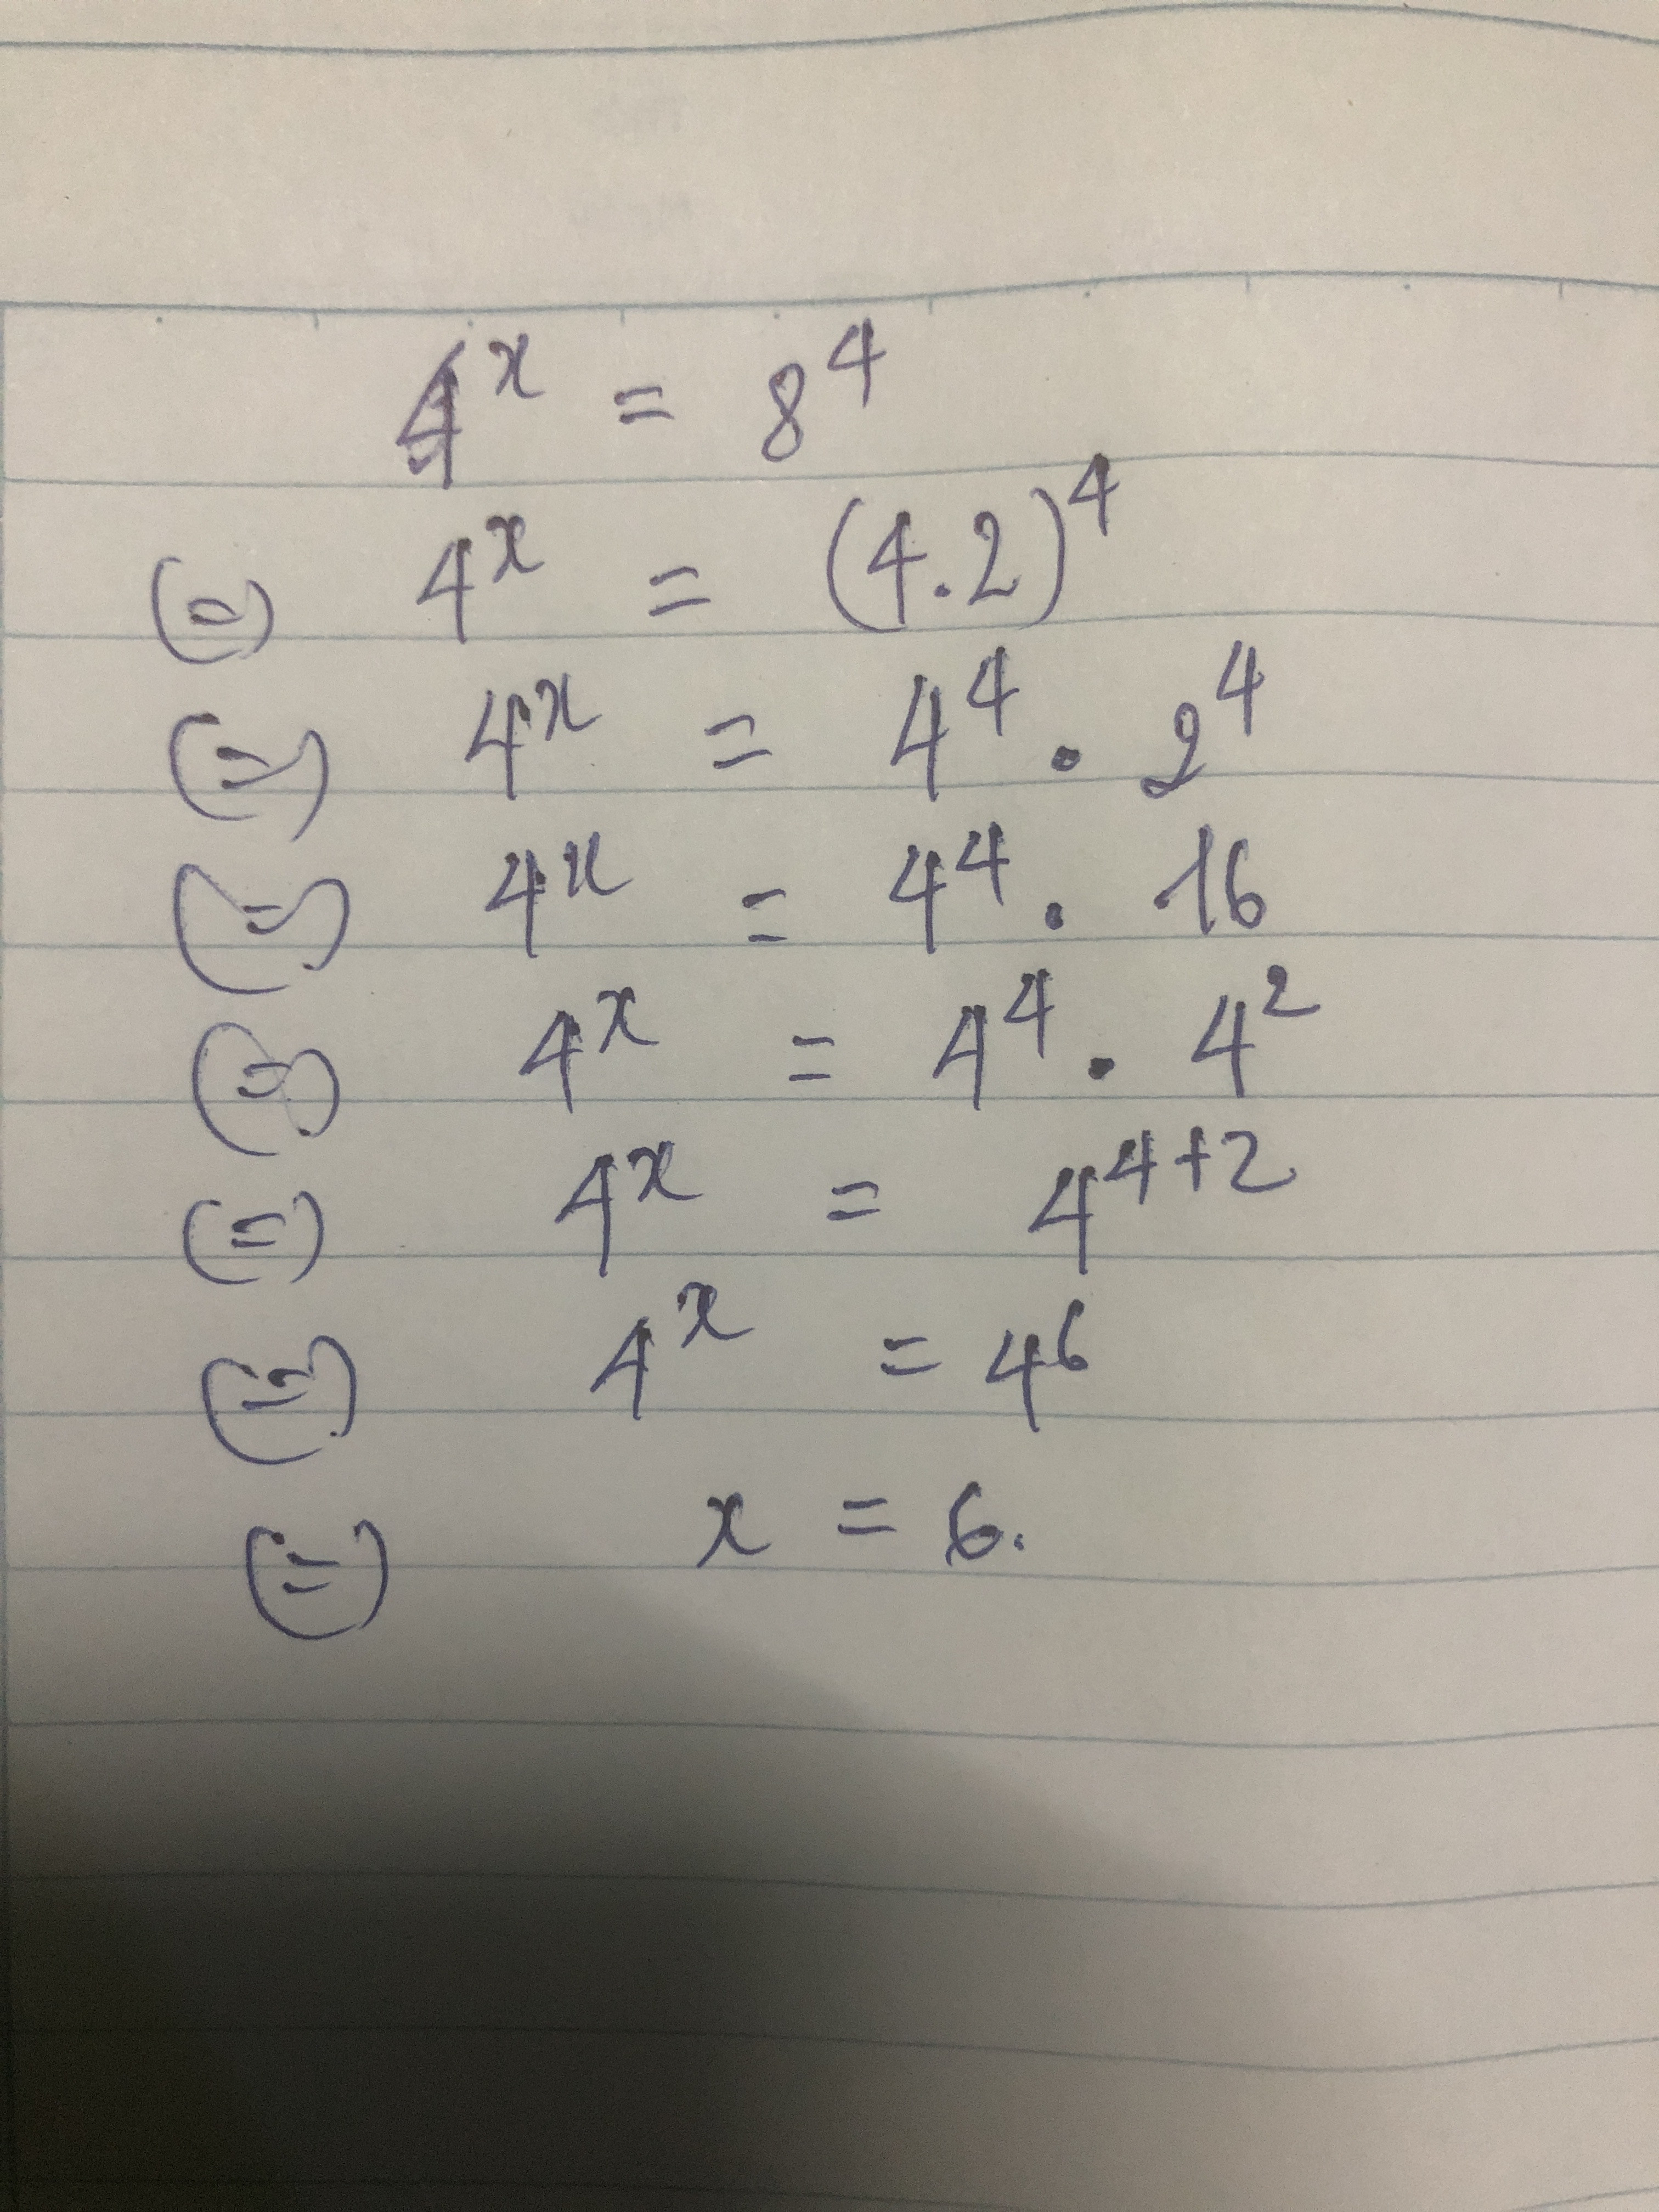 4ˣ = 8⁴
(=) 4ˣ = (4.2)⁴
(=) 4ˣ = 4⁴ . 2⁴
(=) 4ˣ = 4⁴ . 16
(=) 4ˣ = 4⁴ . 4²
(=) 4ˣ = 4⁴⁺²
(=) 4ˣ = 4⁶
(=) x = 6.